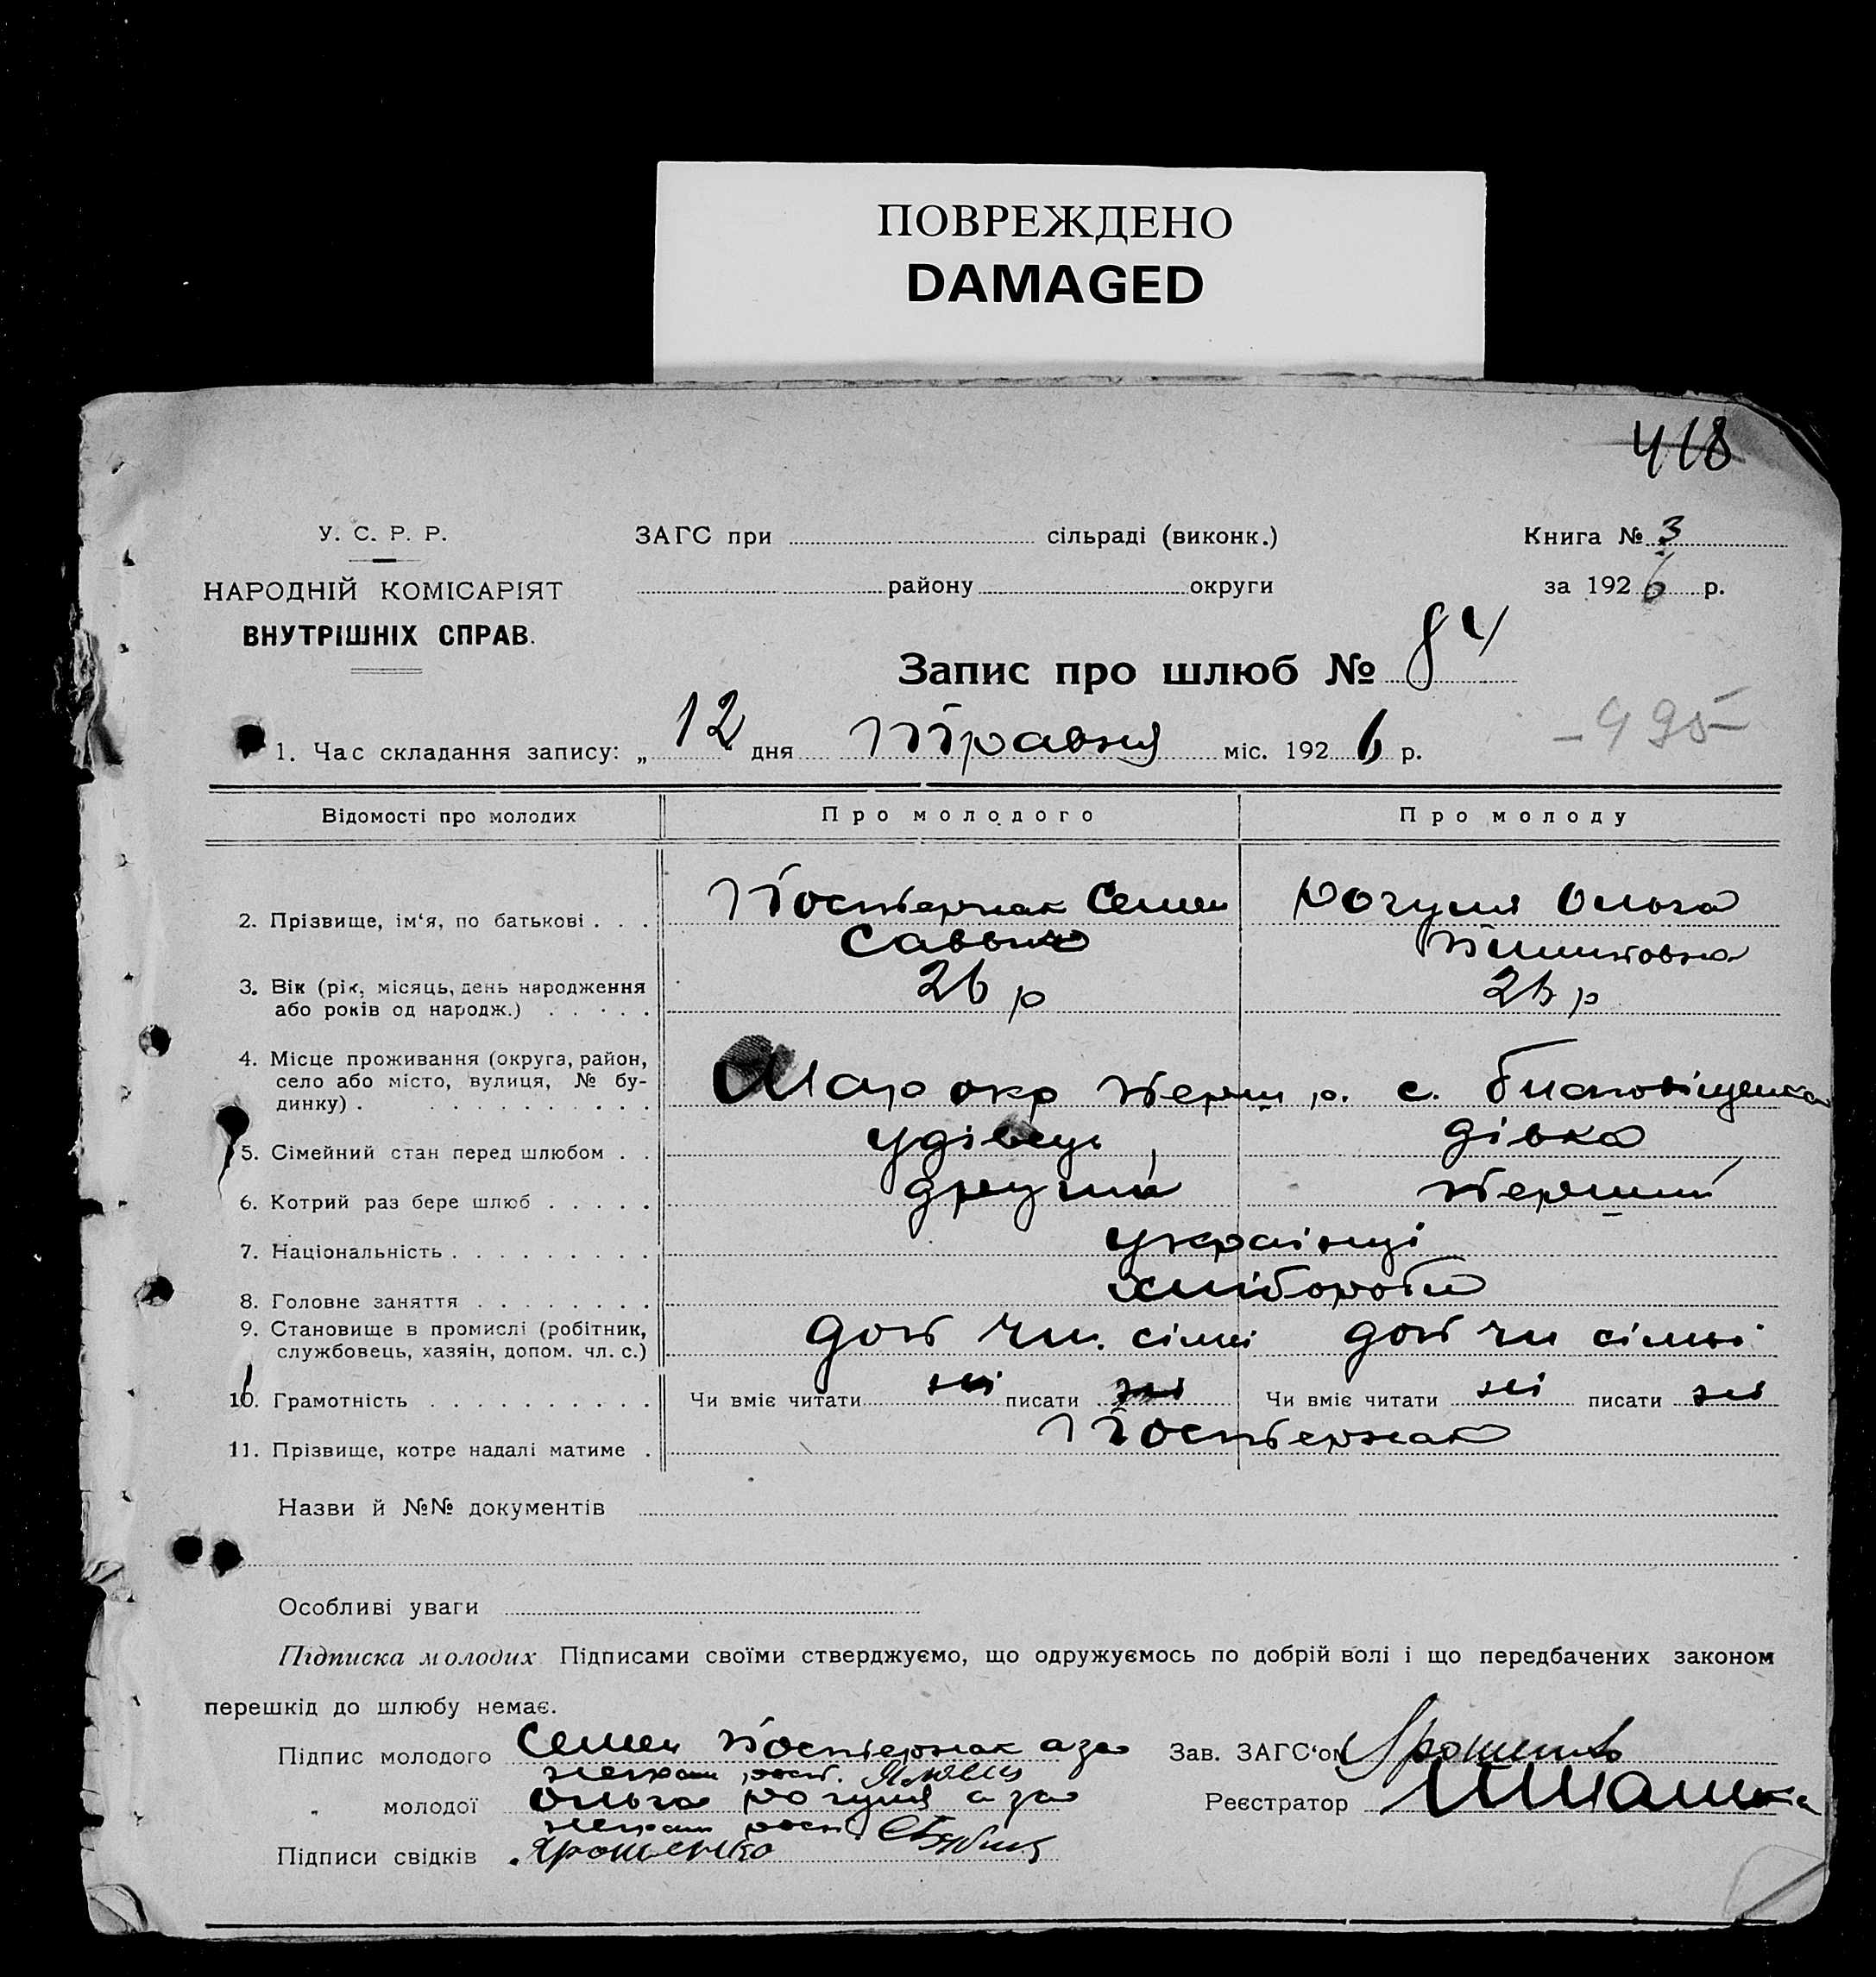 ПОВРЕЖДЕНО
DAMAGED
418
У. С. Р. Р.
НАРОДНІЙ КОМІСАРІЯТ
ВНУТРІШНІХ СПРАВ.
ЗАГС при сільраді (виконк.)
району округи
Книга № 3
за 1926 р.
Запис про шлюб № 84
495
1. Час складання запису: „ 12 " дня Травня міс. 1926 р.
Відомості про молодих Про молодого Про молоду
2. Прізвище, ім'я, по батькові . . . Постернак Семен Ольга
Савович
3. Вік (рік, місяць, день народження
або років од народж.) . . . . . 26 р р
4. Місце проживання (округа, район,
село або місто, вулиця, № бу-
динку) . . . . . . . . . . . Мар окр р. с.
5. Сімейний стан перед шлюбом . . удівець дівка
6. Котрий раз бере шлюб . . . . . другий перший
7. Національність . . . . . . . . . українці
8. Головне заняття . . . . . . . . хлібороби
9. Становище в промислі (робітник,
службовець, хазяїн, допом. чл. с.) доп чл. сімї доп чл сімьі
10. Грамотність . . . . . . . . . . Чи вміє читати ні писати ні Чи вміє читати ні писати ні
11. Прізвище, котре надалі матиме . Постернак
Назви й №№ документів
Особливі уваги
Підписка молодих Підписами своїми стверджуємо, що одружуємось по добрій волі і що передбачених законом
перешкід до шлюбу немає.
Підпис молодого Семен Постернак а за
неграм рост.
" молодої Ольга а за
неграм рост.
Підписи свідків Ярошенко
Зав. ЗАГС'ом
Реєстратор